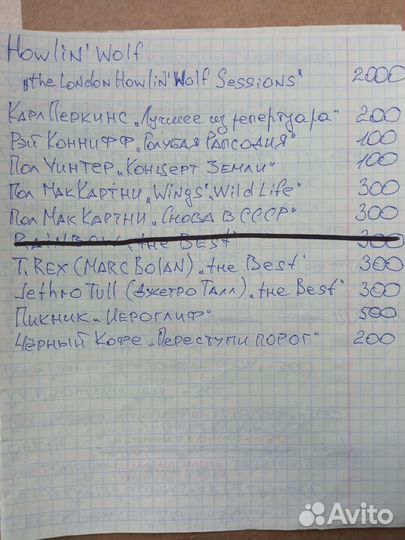 Howlin' Wolf
„the London Howlin' Wolf Sessions" 2000
Карл Перкинс „Лучшее из репертуара" 200
Рэй Коннифф „Голубая рапсодия" 100
Пол Уинтер „Концерт Земли" 100
Пол МакКартни „Wings" „Wild Life" 300
Пол МакКартни „Снова в СССР" 300
Rainbow „the Best" 300
T.Rex (Marc Bolan) „the Best" 300
Jethro Tull (Джетро Талл) „the Best" 300
Пикник „Иероглиф" 500
Чёрный Кофе „Переступи порог" 200
Avito